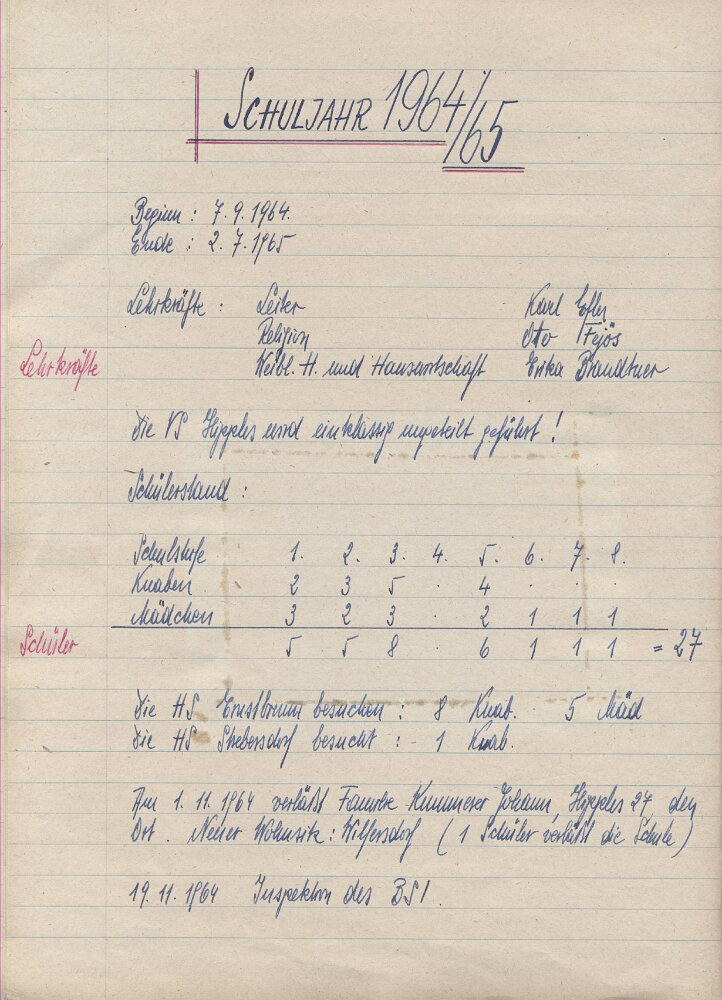 SCHULJAHR 1964/65
Beginn : 7.9.1964.
Ende : 2.7.1965
Lehrkräfte : Leiter Karl Efler
Religion Otto Fejös
Lehrkräfte Weibl. H. und Hauswirtschaft Erika Brandtner
Die VS Hipples wird einklassig ungeteilt geführt !
Schülerstand :
Schulstufe 1. 2. 3. 4. 5. 6. 7. 8.
Knaben 2 3 5 . 4 . . .
Mädchen 3 2 3 . 2 1 1 1
Schüler 5 5 8 6 1 1 1 = 27
Die HS Ernstbrunn besuchen : 8 Knab. 5 Mäd
Die HS Strebersdorf besucht : 1 Knab.
Am 1.11.1964 verläßt Familie Johann, Hipples 27 den
Ort. Neuer Wohnsitz : Wilfersdorf ( 1 Schüler verläßt die Schule )
19.11.1964 Inspektion des BSI.